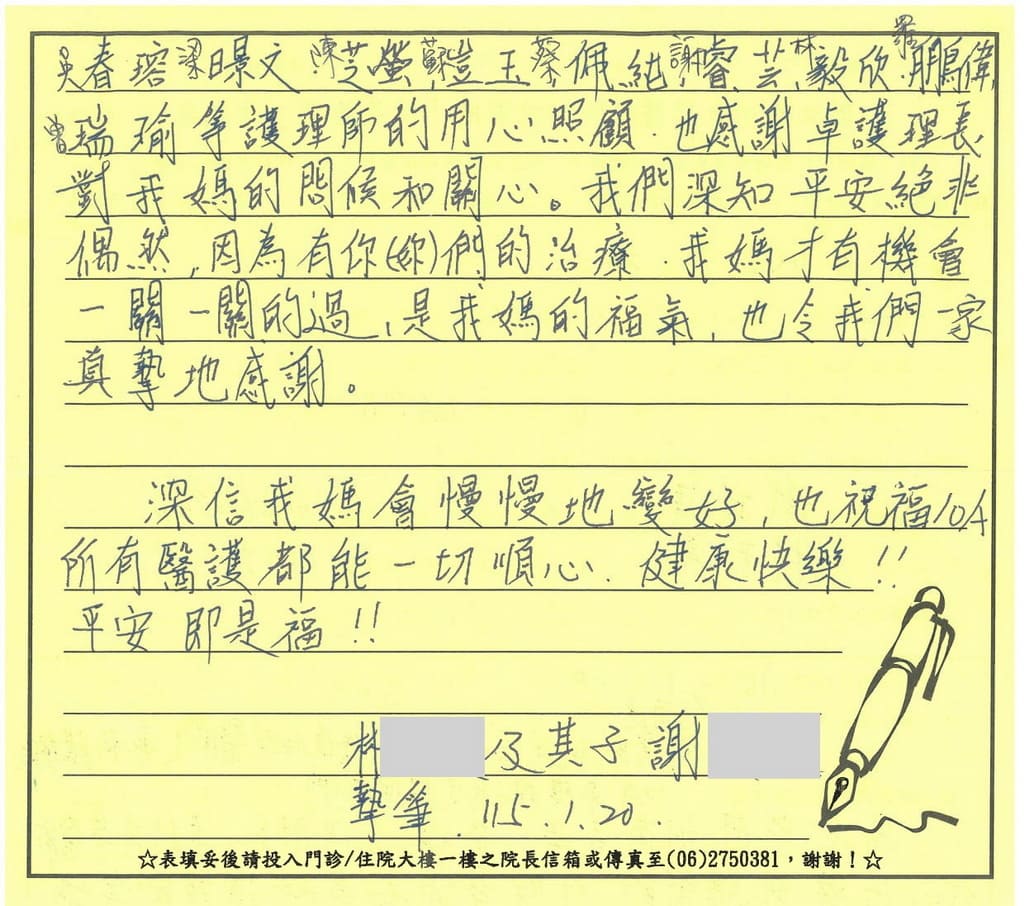 吳春瑢 梁暻文 陳芝螢, 蘇愷玉 蔡佩純, 謝睿芸, 林毅欣, 羅鵬偉
曾瑞瑜等護理師的用心照顧. 也感謝卓護理長
對我媽的問候和關心。我們深知平安絕非
偶然, 因為有你(妳)們的治療. 我媽才有機會
一關一關的過, 是我媽的福氣, 也令我們一家
真摯地感謝。
深信我媽會慢慢地變好, 也祝福10A
所有醫護都能一切順心. 健康快樂!!
平安即是福!!
林 及其子謝
摯筆. 115.1.20.
☆表填妥後請投入門診/住院大樓一樓之院長信箱或傳真至(06)2750381,謝謝!☆